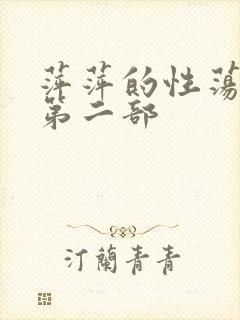 萍萍的性荡
第二部
汀兰青青